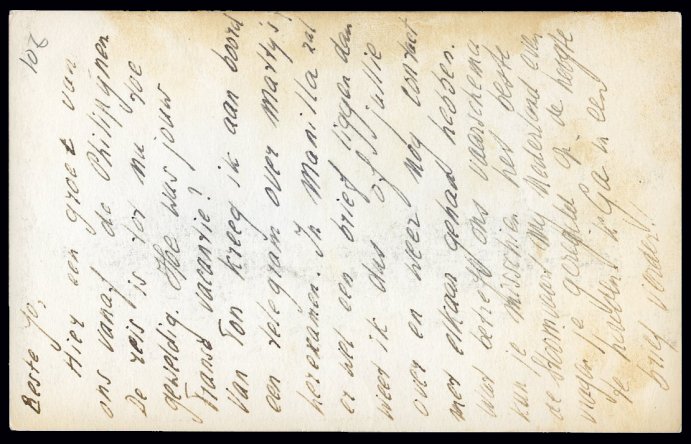 106
Beste Jo,
Hier een groet van
ons vanaf de Philippijnen
De reis is tot nu toe
geweldig. Hoe was jouw
Franse vacantie?
Van Ton kreeg ik aan boord
een telegram over Martijs'
herexamen. In Manilla zal
er wel een brief liggen dan
weet ik dus of jullie
over en weer nog contact
met elkaar gehad hebben.
Wat betreft ons vaarschema
kun je misschien het beste
de Stoomvaart Mij Nederland even
vragen je geregeld op de hoogte
te houden. Ik ga in een
brief verder!